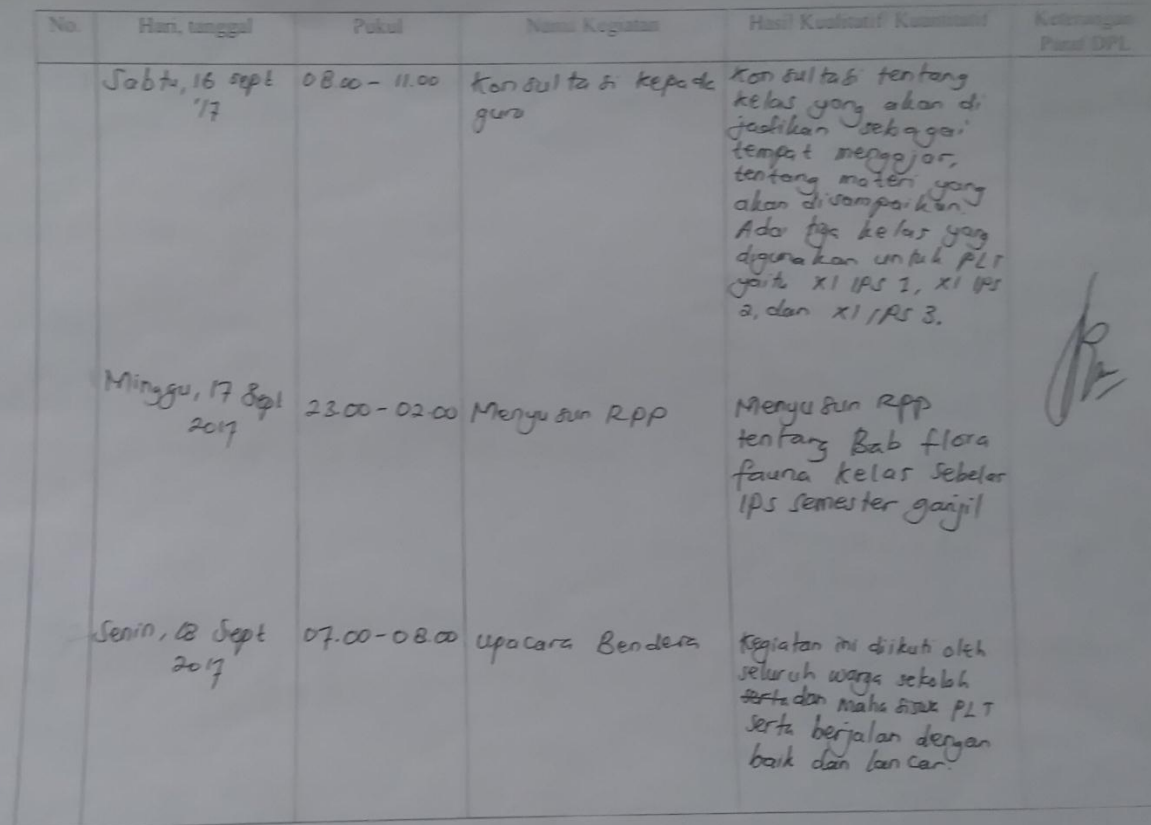 No. Hari, tanggal Pukul Nama Kegiatan Hasil Kualitatif/ Kuantitatif Keterangan/
Paraf DPL
Sabtu, 16 sept
'17
08.00 - 11.00
Konsultasi kepada
guru
Konsultasi tentang
kelas yang akan di
jadikan sebagai
tempat mengajar,
tentang materi yang
akan disampaikan.
Ada tiga kelas yang
digunakan untuk PLT
yaitu XI IPS 1, XI IPS
2, dan XI IPS 3.
Minggu, 17 Sept
2017
23.00 - 02.00
Menyusun RPP
Menyusun RPP
tentang Bab flora
fauna kelas sebelas
IPS semester ganjil
Senin, 18 Sept
2017
07.00 - 08.00
Upacara Bendera
Kegiatan ini diikuti oleh
seluruh warga sekolah
serta dan mahasiswa PLT
serta berjalan dengan
baik dan lancar.